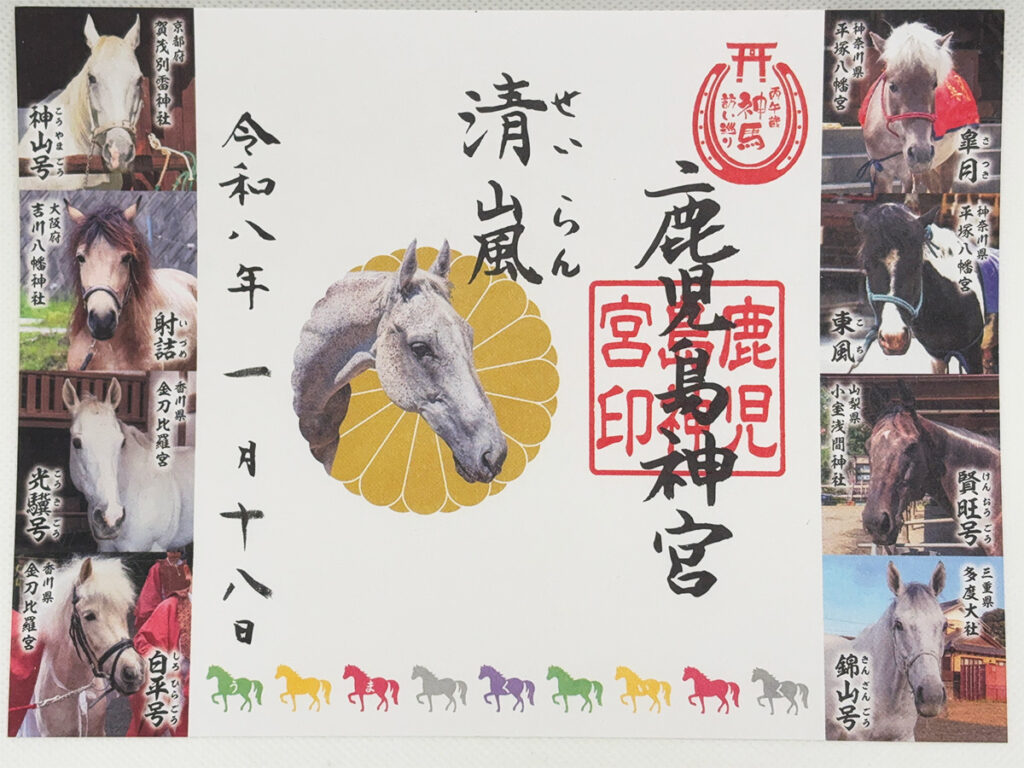 神奈川県
平塚八幡宮
さつき
皐月
神奈川県
平塚八幡宮
こち
東風
山梨県
小室浅間神社
けんおうごう
賢旺号
三重県
多度大社
きんざんごう
錦山号
丙午歳
神馬
訪い巡り
鹿児島神宮
鹿児
島神
宮印
せいらん
清嵐
令和八年一月十八日
う ま く い く
京都府
賀茂別雷神社
こうやまごう
神山号
大阪府
吉川八幡神社
いづめ
射詰
香川県
金刀比羅宮
こうきごう
光驥号
香川県
金刀比羅宮
しろひらごう
白平号